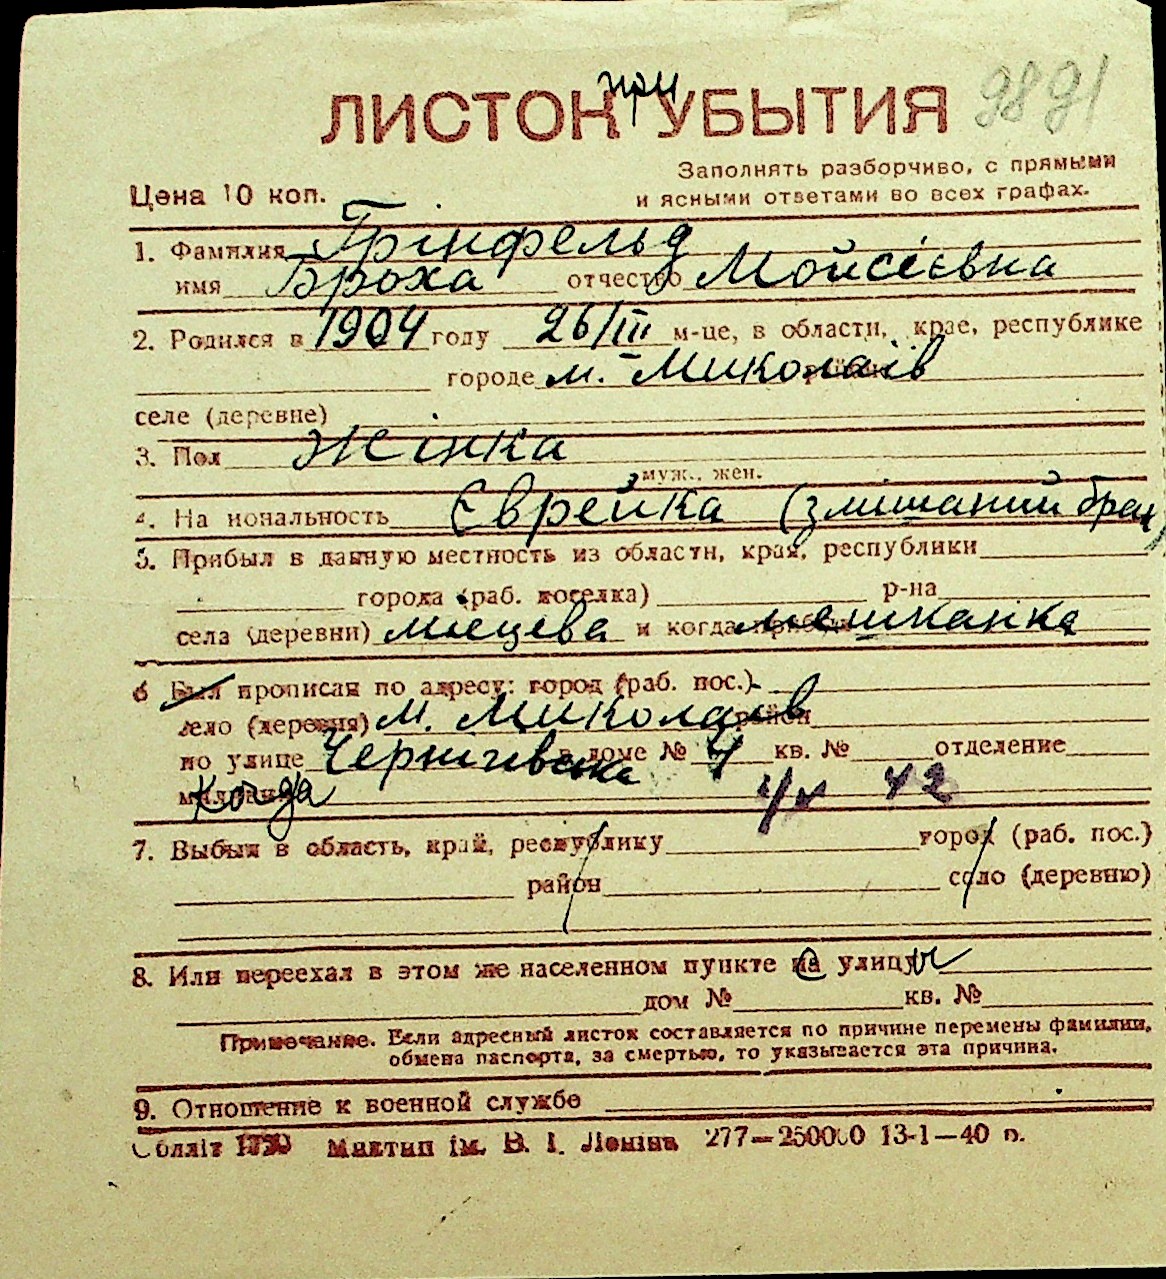 при 9891
ЛИСТОК УБЫТИЯ
Заполнять разборчиво, с прямыми
Цена 10 коп. и ясными ответами во всех графах.
1. Фамилия Грінфельд
имя Броха отчество Мойсеєвна
2. Родился в 1904 году 26/III м-це, в области, крае, республике
городе м. Миколаїв
селе (деревне)
3. Пол жінка
муж., жен.
4. На иональность Єврейка (змішаний брак)
5. Прибыл в данную местность из области, края, республики
города (раб. поселка) р-на
села (деревни) місцева и когда мешканка
6 Был прописан по адресу: город (раб. пос.)
село (деревня) м. Миколаїв район
по улице Чернигівська в доме № 4 кв. № отделение
Когда 4/V 42
7. Выбыл в область, край, республику город (раб. пос.)
район село (деревню)
8. Или переехал в этом же населенном пункте с улицы
дом № кв. №
Примечание. Если адресный листок составляется по причине перемены фамилии,
обмена паспорта, за смертью, то указывается эта причина.
9. Отношение к военной службе
Облліт 1750 Миктип ім. В. І. Леніна 277—250000 13-1—40 р.